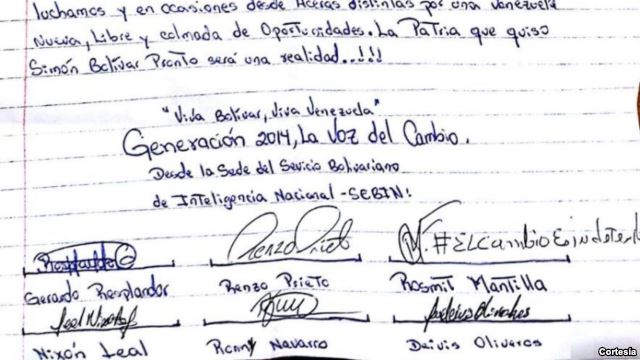 luchamos y en ocasiones desde Aceras distintas por una Venezuela
Nueva, Libre y colmada de Oportunidades. La Patria que quiso
Simón Bolívar Pronto será una realidad..!!!
"Viva Bolívar, Viva Venezuela"
Generación 2014, La Voz del Cambio.
Desde la Sede del Servicio Bolivariano
de Inteligencia Nacional - SEBIN!
Resplandor Renzo Prieto #ElCambioEs
Gerardo Resplandor Renzo Prieto Rosmit Mantilla
Leal Nixon
Nixón Leal Ronny Navarro Deivis Oliveros
Cortesía